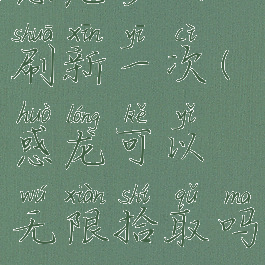 shuā xīn yī cì
刷新一次(
huò lóng kě yǐ
惑龙可以
wú xiàn shí qǔ ma
无限拾取吗